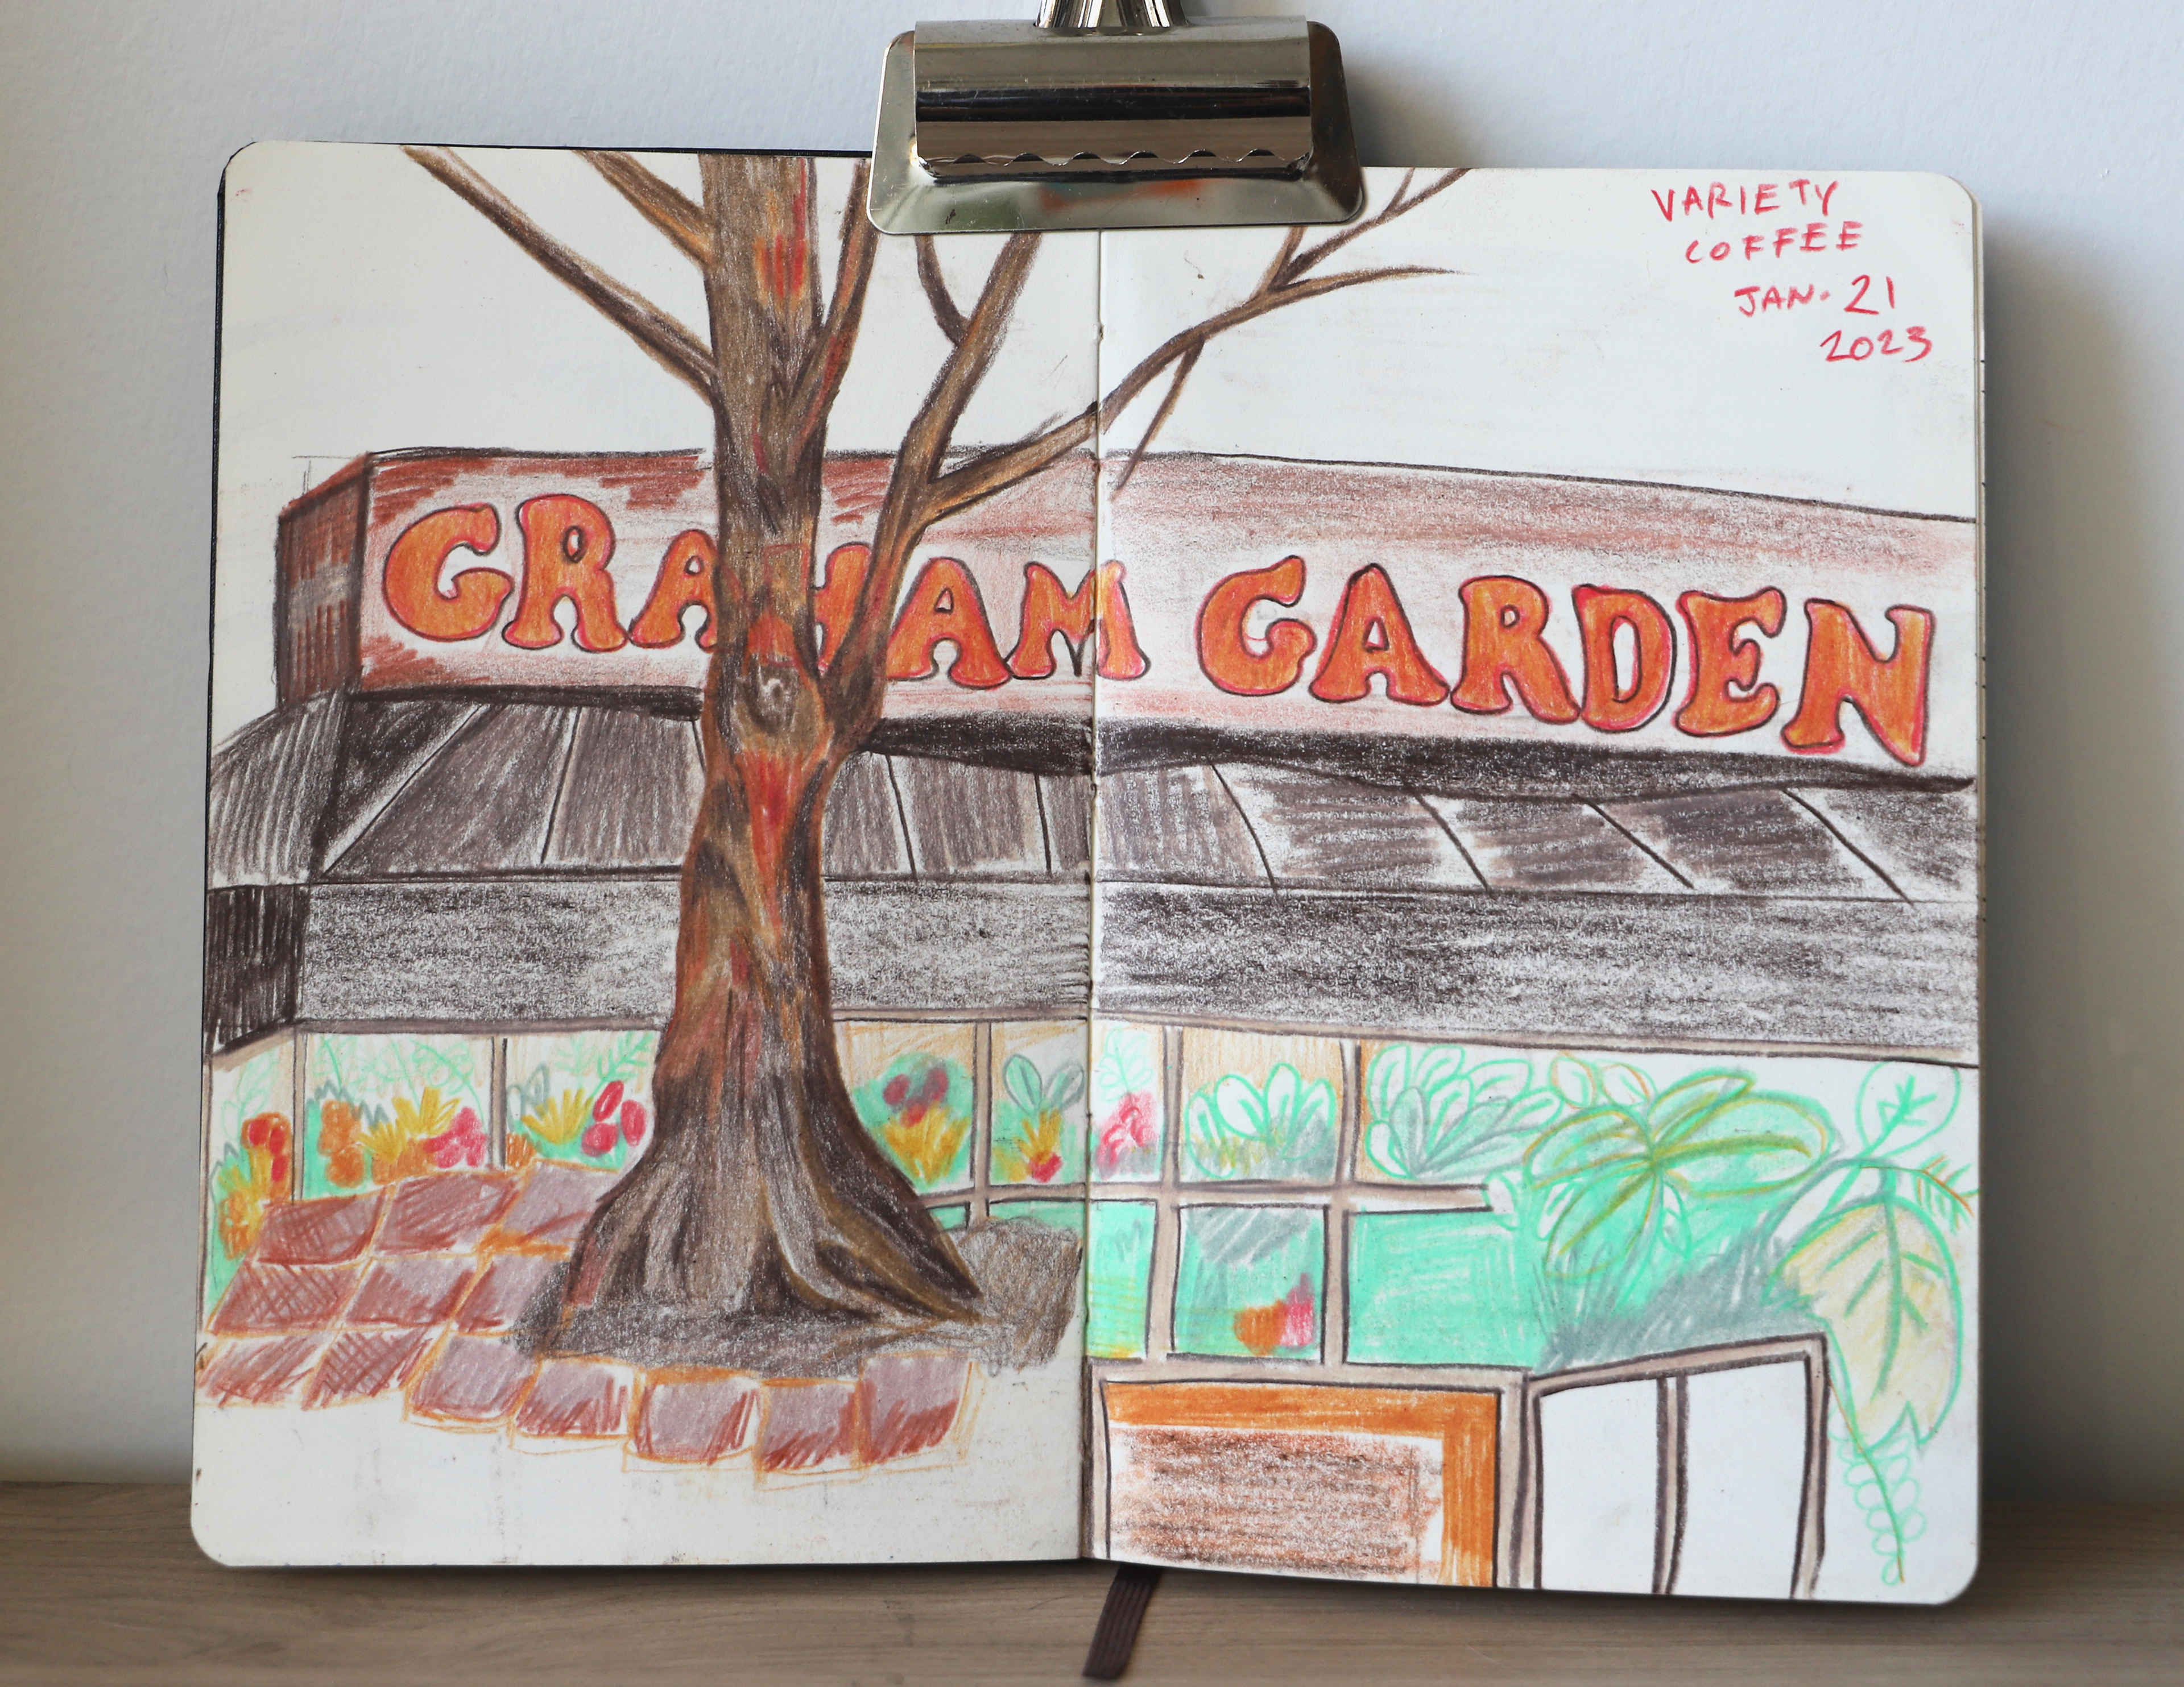 VARIETY
COFFEE
JAN. 21
2023
GRAHAM GARDEN